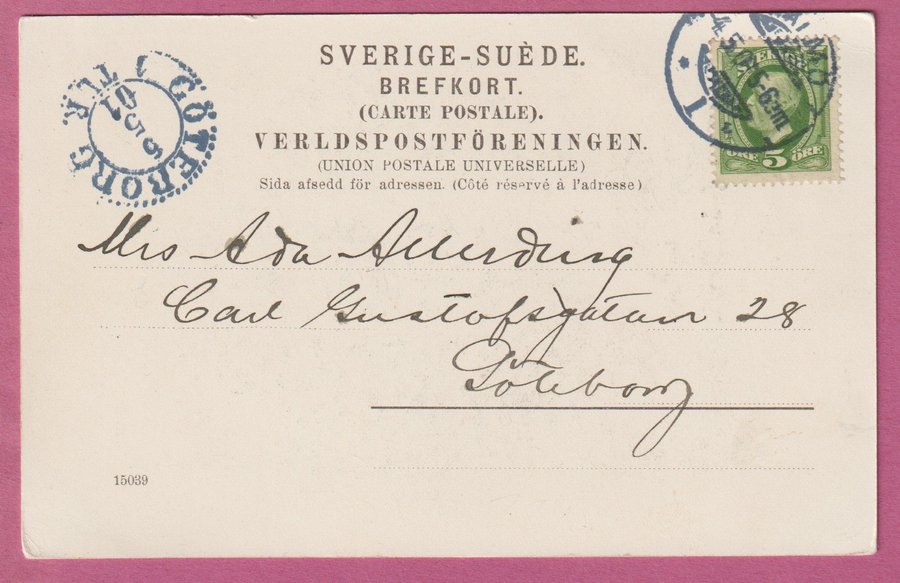 SVERIGE-SUÈDE.
BREFKORT.
(CARTE POSTALE).
VERLDSPOSTFÖRENINGEN.
(UNION POSTALE UNIVERSELLE)
Sida afsedd för adressen. (Côté réservé à l'adresse)
GÖTEBORG 1 TUR
5 5 01
SVERIGE
ÖRE 5 ÖRE
Mrs Ada Allerding
Carl Gustafsgatan 28
Göteborg
15039